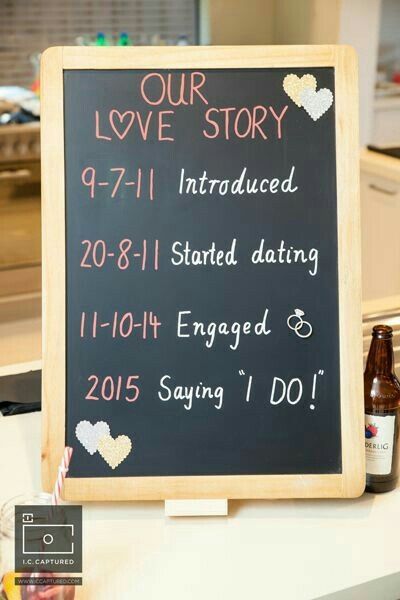 OUR
LOVE STORY
9-7-11 Introduced
20-8-11 Started dating
11-10-14 Engaged
2015 Saying "I DO!"
DERLIG
I.C.CAPTURED
WWW.ICCAPTURED.COM